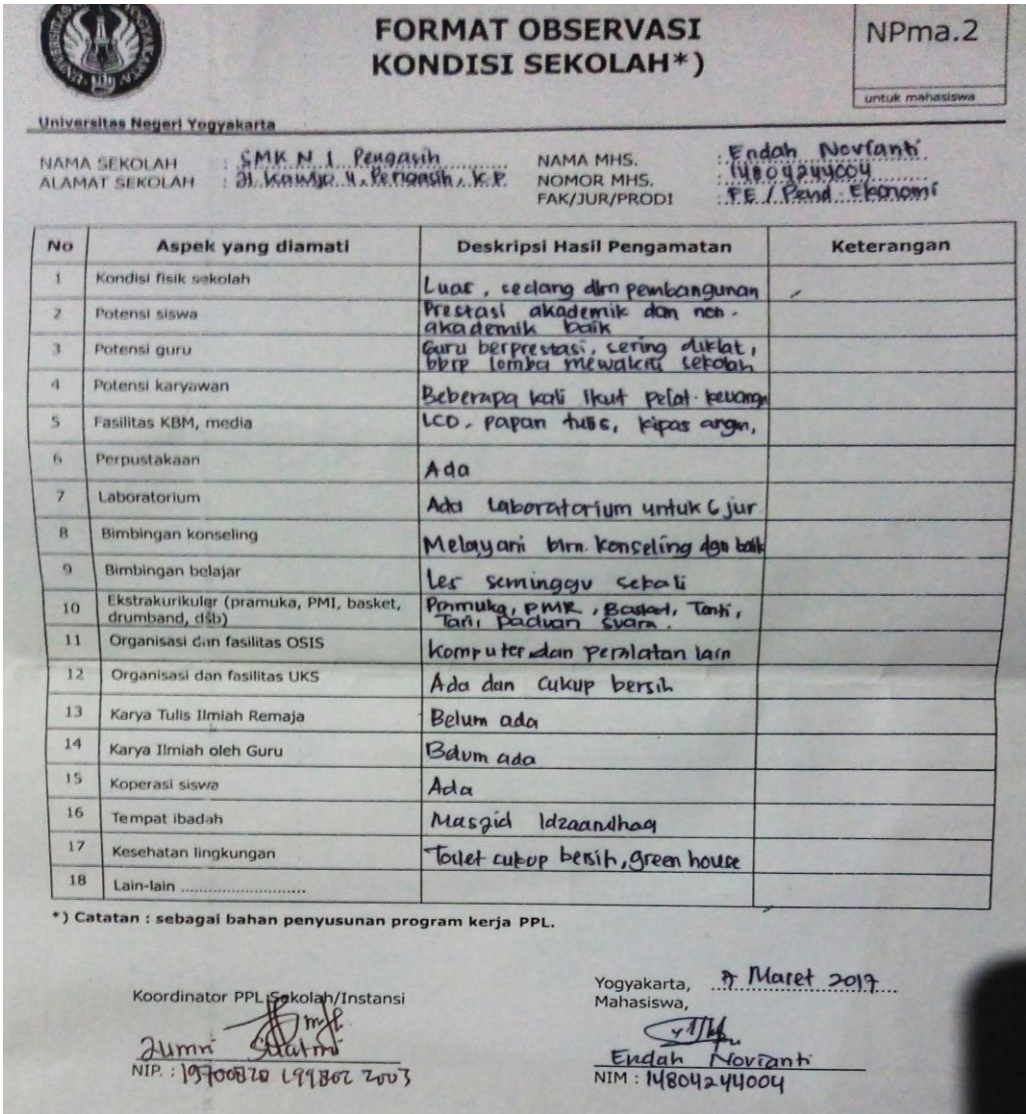 FORMAT OBSERVASI
KONDISI SEKOLAH*)
NPma.2
untuk mahasiswa
Universitas Negeri Yogyakarta
NAMA SEKOLAH : SMK N 1 Pengasih
ALAMAT SEKOLAH : Jl. Kawijo 4, Pengasih, K.P.
NAMA MHS. : Endah Novianti
NOMOR MHS. : 14804244004
FAK/JUR/PRODI : FE / Pend. Ekonomi
No Aspek yang diamati Deskripsi Hasil Pengamatan Keterangan
1 Kondisi fisik sekolah Luas, sedang dlm pembangunan
2 Potensi siswa Prestasi akademik dan non-
akademik baik
3 Potensi guru Guru berprestasi, sering diklat,
bbrp lomba mewakili sekolah
4 Potensi karyawan Beberapa kali ikut pelat. keuangn
5 Fasilitas KBM, media LCD, papan tulis, kipas angin,
6 Perpustakaan Ada
7 Laboratorium Ada Laboratorium untuk 6 jur
8 Bimbingan konseling Melayani bim. konseling dgn baik
9 Bimbingan belajar Les seminggu sekali
10 Ekstrakurikuler (pramuka, PMI, basket,
drumband, dsb) Pramuka, PMR, Basket, Tonti,
Tari, Paduan Suara.
11 Organisasi dan fasilitas OSIS Komputer dan peralatan lain
12 Organisasi dan fasilitas UKS Ada dan cukup bersih
13 Karya Tulis Ilmiah Remaja Belum ada
14 Karya Ilmiah oleh Guru Belum ada
15 Koperasi siswa Ada
16 Tempat ibadah Masjid
17 Kesehatan lingkungan Toilet cukup bersih, green house
18 Lain-lain ............................
*) Catatan : sebagai bahan penyusunan program kerja PPL.
Yogyakarta, 7 Maret 2017
Koordinator PPL Sekolah/Instansi
Mahasiswa,
Endah Novianti
NIP. : 19700820 199802 2003
NIM : 14804244004